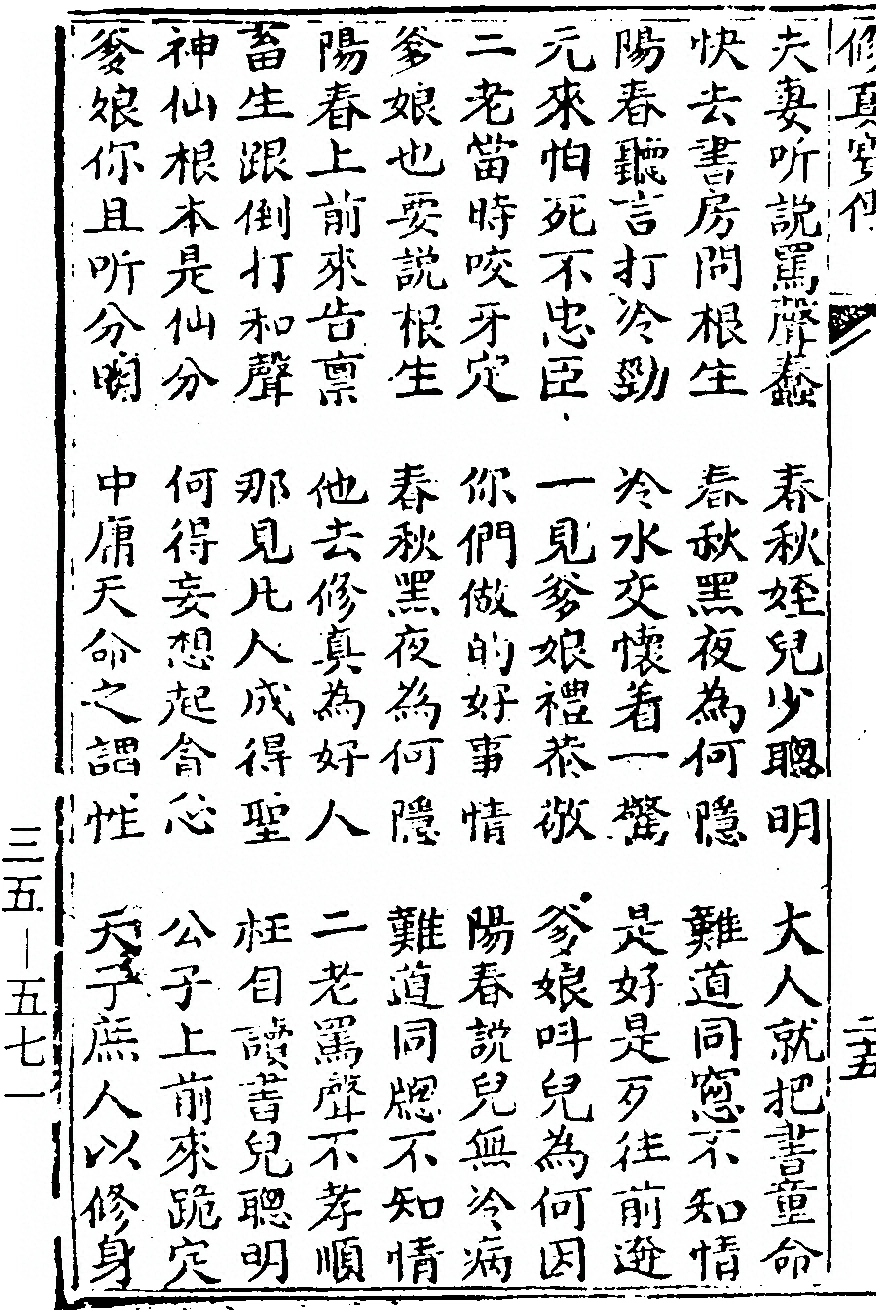 修真寶傳
二十五
夫妻听説罵聲蠢 春秋姪兒少聰明 大人就把書童命
快去書房問根生 春秋黑夜為何隱 難道同窓不知情
陽春聽言打冷勁 冷水交懷着一驚 是好是歹往前進
元來怕死不忠臣 一見爹娘禮恭敬 爹娘呌兒為何因
二老當時咬牙定 你們做的好事情 陽春説兒無冷病
爹娘也要説根生 春秋黑夜為何隱 難道同牕不知情
陽春上前來告禀 他去修真為好人 二老罵聲不孝順
畜生跟倒打和聲 那見凡人成得聖 枉自讀書兒聰明
神仙根本是仙分 何得妄想起貪心 公子上前來跪定
爹娘你且听分明 中庸天命之謂性 天子庶人以修身
三五－五七一